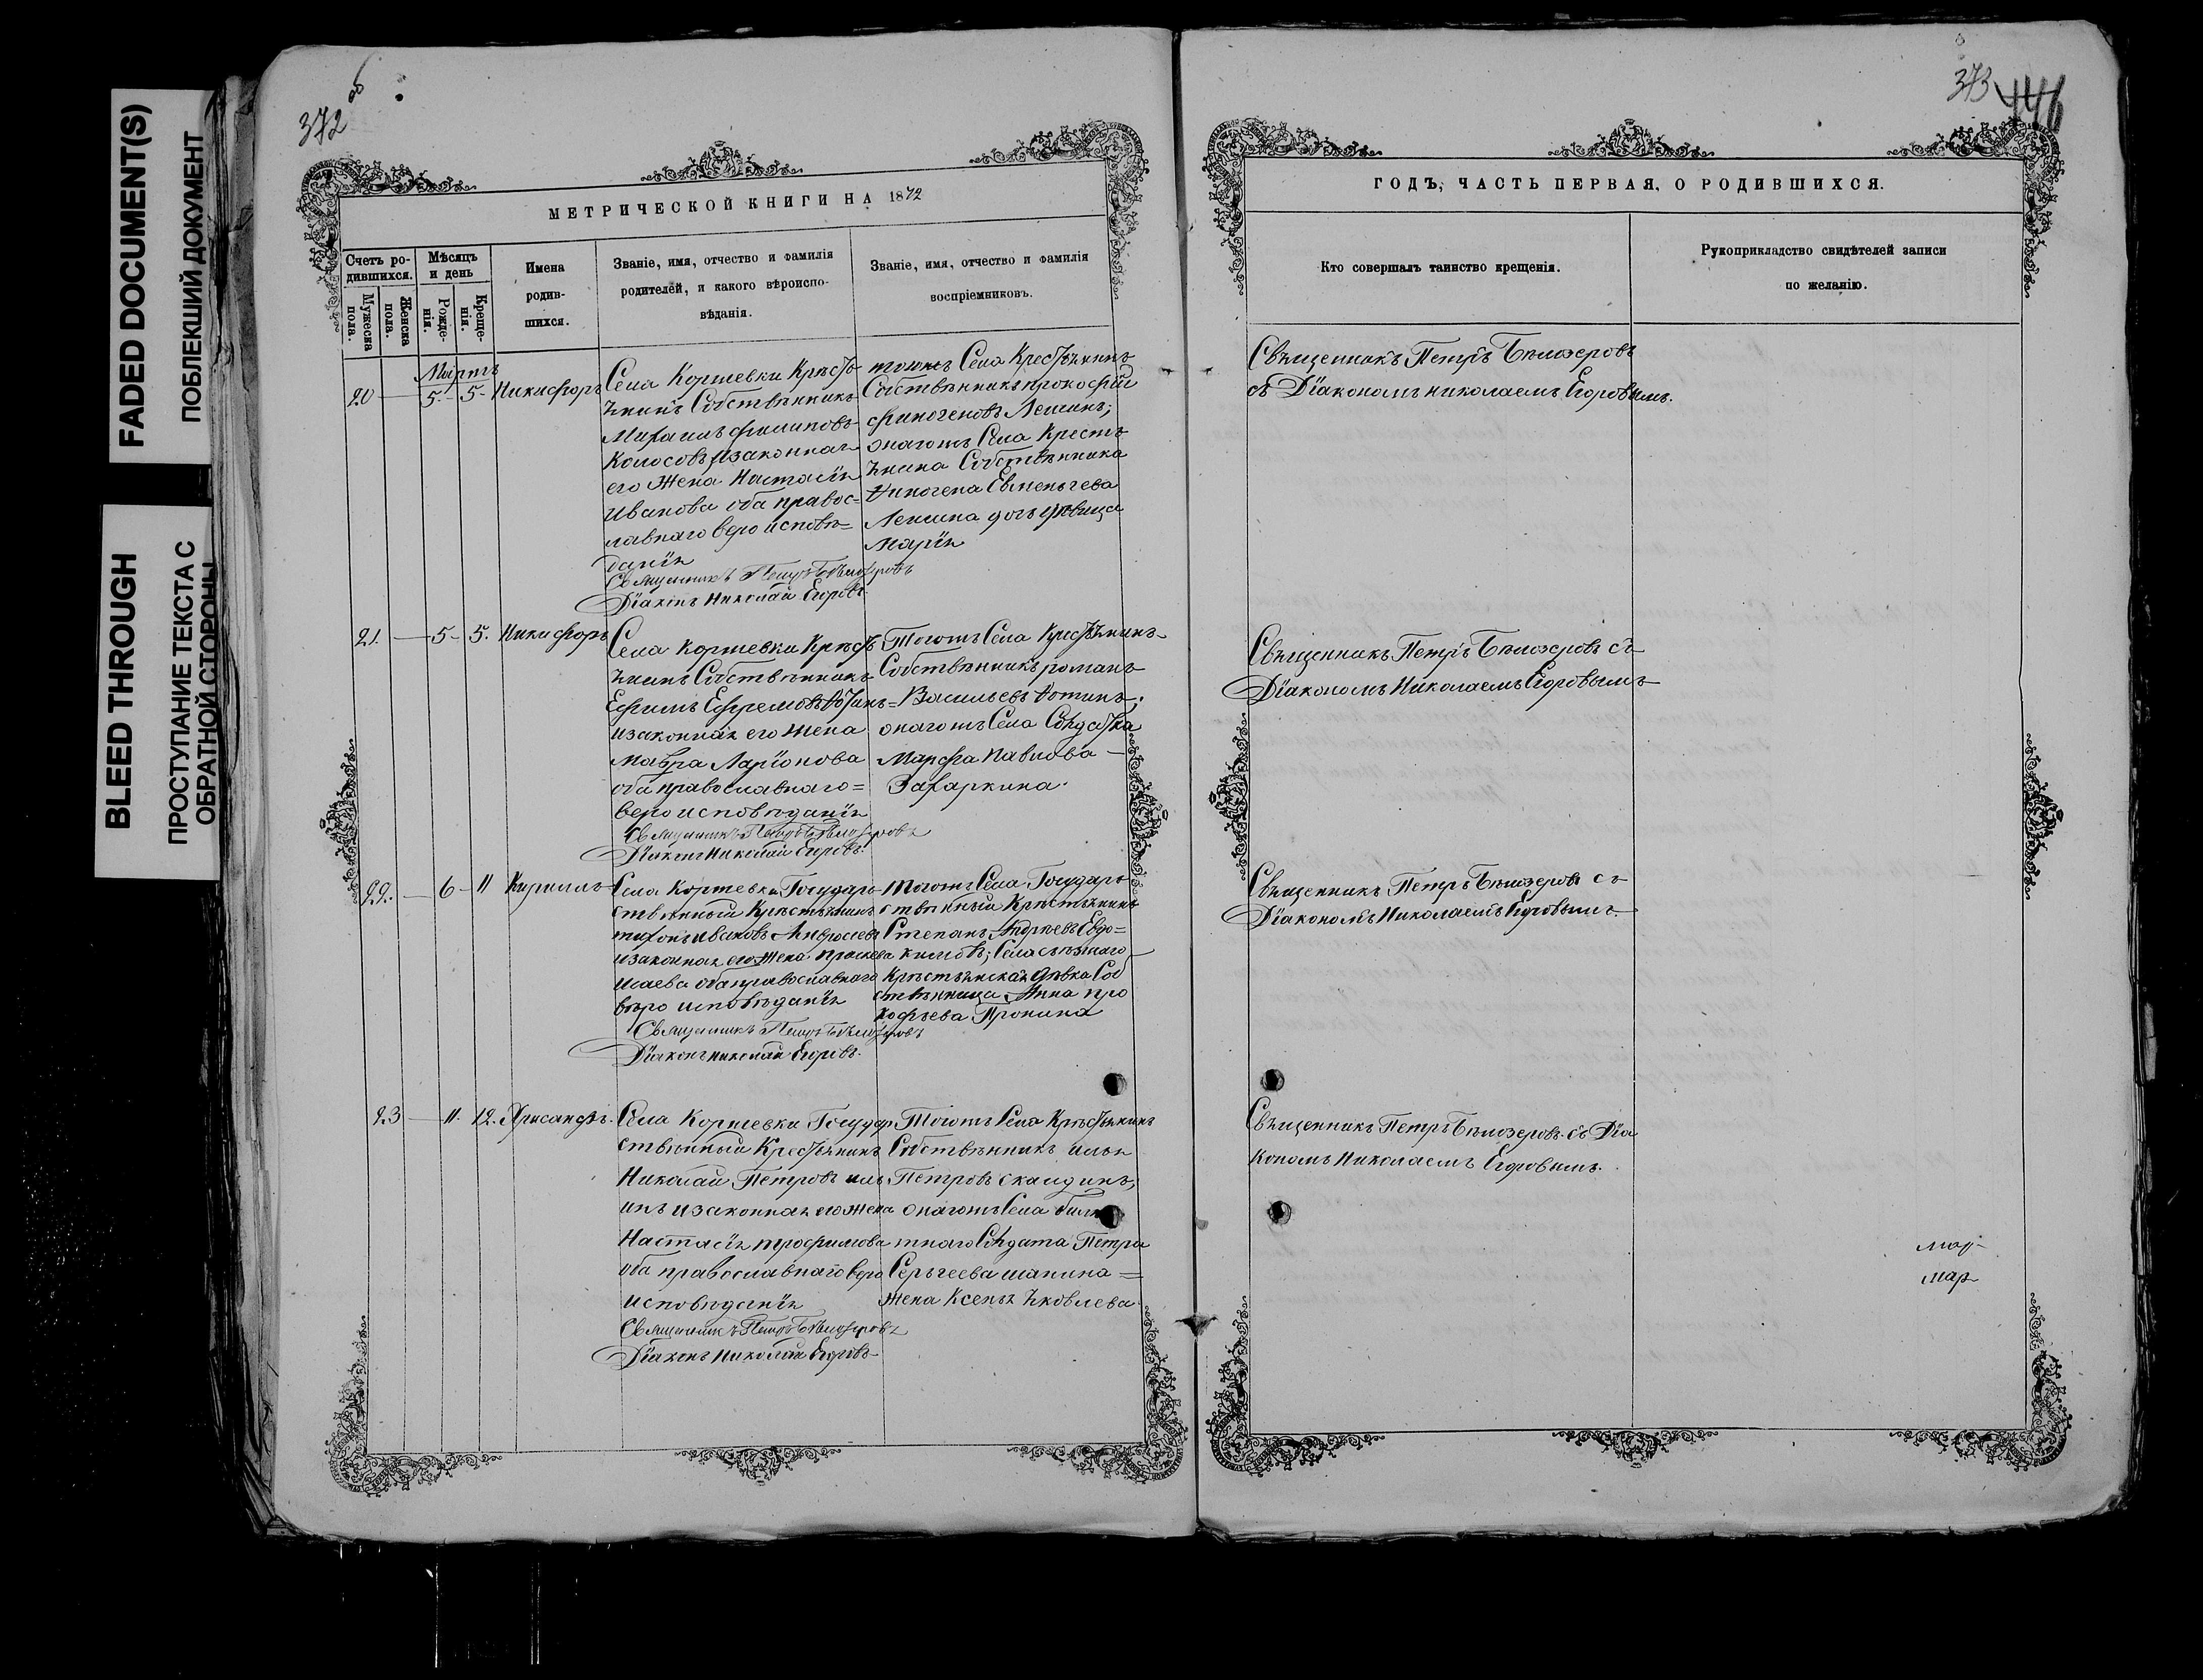 FADED DOCUMENT(S)
ПОБЛЕКШИЙ ДОКУМЕНТ
BLEED THROUGH
ПРОСТУПАНИЕ ТЕКСТА С
ОБРАТНОЙ СТОРОНЫ
372 об
МЕТРИЧЕСКОЙ КНИГИ НА 1872
Счетъ ро-
дившихся.
Мужеска
пола.
Женска
пола.
Мѣсяцъ
и день
Рожде-
нія.
Креще-
нія.
Имена
родив-
шихся.
Званіе, имя, отчество и фамилія
родителей, и какого вѣроиспо-
вѣданія.
Званіе, имя, отчество и фамилія
воспріемниковъ.
Мартъ
20 5 5 Никифоръ
Села Коржевки Крѣсть
янинъ Собствѣнникъ
Михаилъ филиповъ
Колосовъ изаконная
его жена Настасія
Иванова оба правос=
лавнаго веро исповѣ=
данія
Священникъ Петръ Бѣлозеровъ
Діаконъ Николай Егоровъ.
тогожъ Села Крестьянинъ
Собствѣнникъ прокофій
финогеновъ Лешинъ;
онагожъ Села Кресть
янина Собствѣнника
финогена Евменьчева
Лешина дочъ дѣвица
Марія
21. 5 5. Никифоръ
Села Коржевки Крѣсть
янинъ Собствѣнникъ
Ефимъ Ефремовъ
изаконная его жена
мавра Ларіонова
оба православнаго=
веро исповѣданія
Священникъ Петръ Бѣлозеровъ
Діаконъ Николай Егоровъ.
Тогожъ Села Крестьянинъ
Собствѣнникъ романъ
Васильевъ фотинъ;
онагожъ Села Солдатка
Марфа Павлова
Захаркина.
22. 6 11 Кирилъ
Села Коржевки Государь
ствѣнный Крѣстьянинъ
тихонъ Ивановъ
изаконная его жена прасковa
Исаева оба православнаго
веро исповѣданія
Священникъ Петръ Бѣлозеровъ
Діаконъ николай Егоровъ.
Тогожъ Села Государь
ствѣнный Крѣстьянинъ
Степанъ Андрѣевъ Евдо=
кимовъ; Села
Крѣстьянская дѣвка Соб
ствѣнница Анна про
кофьева Пронина
23 11. 12. Хрисанфъ.
Села Коржевки Государ
ствѣнный Крестьянинъ
Николай Петровъ иль
инъ изаконная его жена
Настасія трофимова
оба православнаго веро
исповѣданія
Священникъ Петръ Бѣлозеровъ
Діаконъ Николай Егоровъ
Тогожъ Села Крѣстьянинъ
Собствѣнникъ илья
Петровъ скалдинъ;
онагожъ Села билѣ
тнаго Солдата Петра
Серьгеева шапина=
жена Ксенья яковлева.
373 446
ГОДЪ, ЧАСТЬ ПЕРВАЯ, О РОДИВШИХСЯ.
Кто совершалъ таинство крещенія.
Рукоприкладство свидѣтелей записи
по желанію.
Свящeнникъ Петръ Бѣлозеровъ
съ Діакономъ николаемъ Егоровымъ.
Священникъ Петръ Бѣлозеровъ съ
Діакономъ Николаемъ Егоровымъ
Священникъ Петръ Бѣлозеровъ съ
Діакономъ Николаемъ Егоровымъ
Священникъ Петръ Бѣлозеровъ съ Діа
кономъ Николаемъ Егоровымъ.
мар
мар